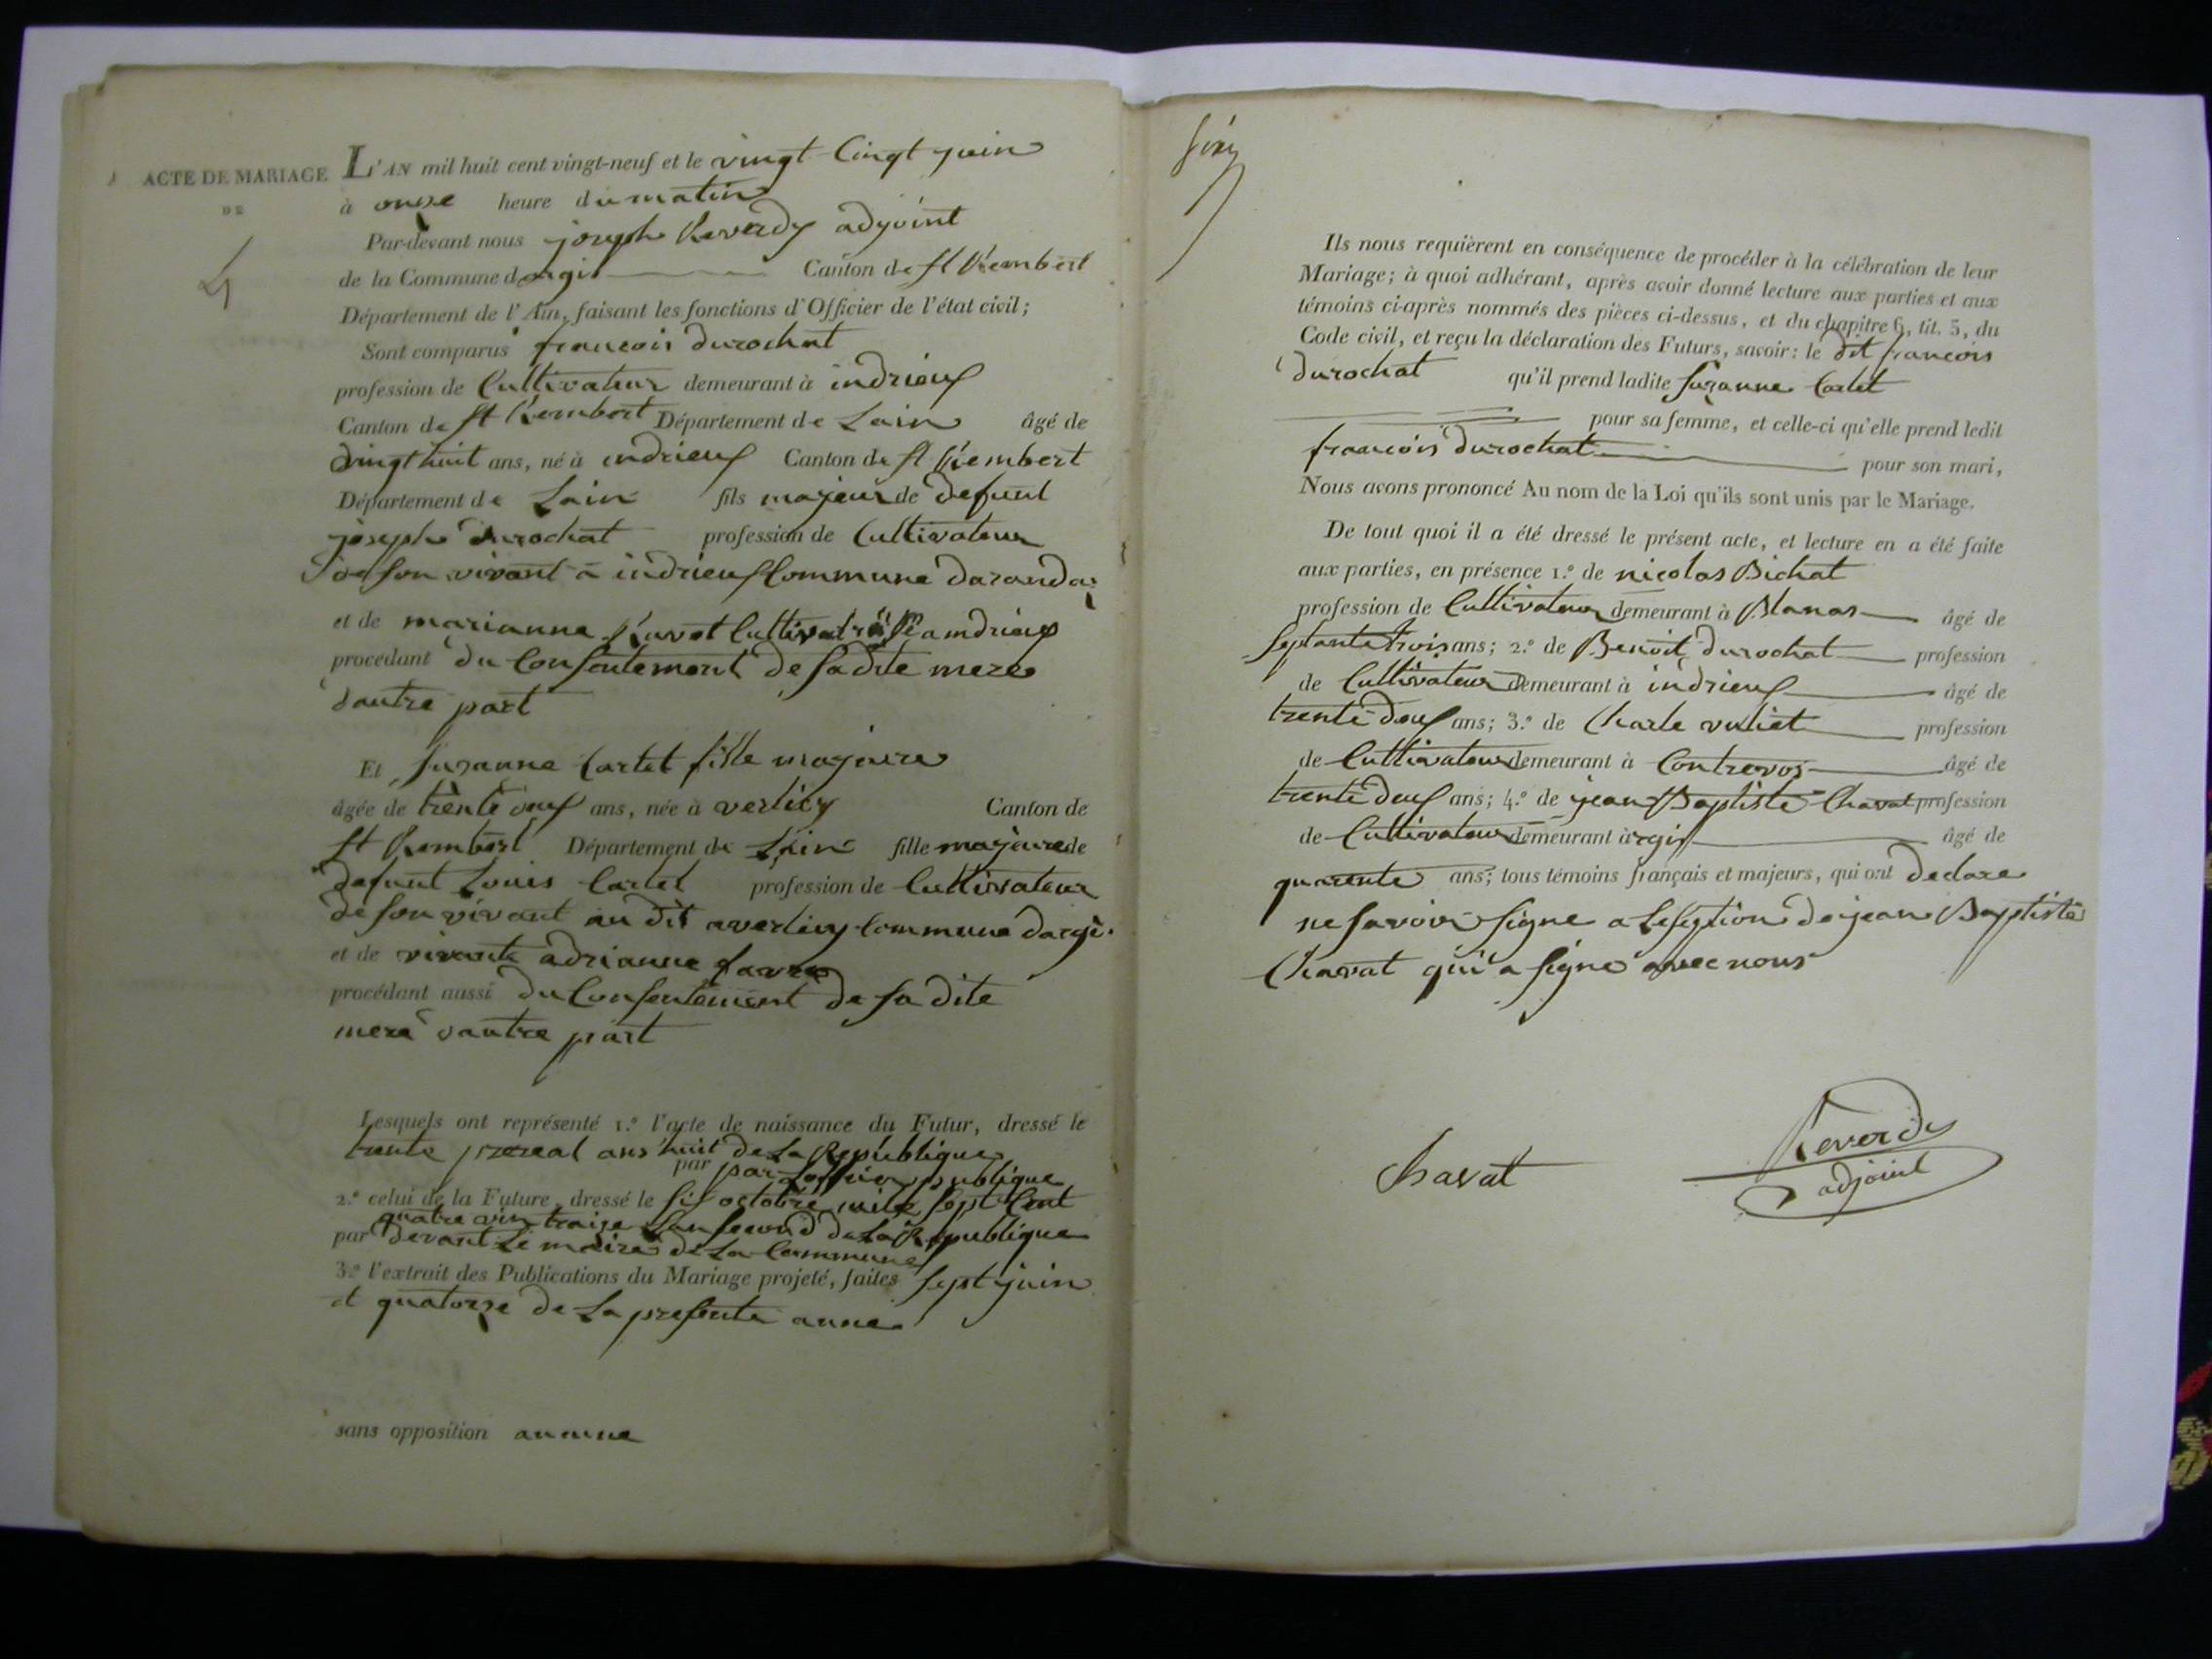 ACTE DE MARIAGE
DE
4
L'AN mil huit cent vingt-neuf et le vingt Cinqt juin
à onze heure du matin
Par-devant nous joseph Reverdy adjoint
de la Commune dargis Canton de st Rembert
Département de l'Ain, faisant les fonctions d'Officier de l'état civil;
Sont comparus francois durochat
profession de Cultivateur demeurant à indrieux
Canton de st Rembert Département de Lain âgé de
vingt huit ans, né à indrieux Canton de st Rembert
Département de Lain fils majeur de defunt
joseph durochat profession de Cultivateur
de son vivant a indrieux Commune daranda
et de marianne Ravet Cultivatrise a indrieux
procédant du Consentement de sadite mere
dautre part
Et Suzanne Cartet fille majeure
âgée de trente ans, née à verlicy Canton de
st Rembert Département de Lain fille majeure de
defunt Louis Cartet profession de Cultivateur
de son vivant au dit averlicy Commune dargis
et de vivante adrianne favre
procédant aussi du Consentement de sa dite
mere dautre part
Lesquels ont représenté 1.° l'acte de naissance du Futur, dressé le
trente prereal ans huit de La Republique
par par Loffiier publique
2.° celui de la Future, dressé le six octobre mile sept Cent
quatre vin traize Lan second de La Republique
par devant Le maire de La Commune
3.° l'extrait des Publications du Mariage projeté, faites sept juin
et quatorze de La presente anne
sans opposition aucune
Ils nous requièrent en conséquence de procéder à la célébration de leur
Mariage; à quoi adhérant, après avoir donné lecture aux parties et aux
témoins ci-après nommés des pièces ci-dessus, et du chapitre 6, tit. 5, du
Code civil, et reçu la déclaration des Futurs, savoir: le dit francois
durochat qu'il prend ladite Suzanne Cartet
pour sa femme, et celle-ci qu'elle prend ledit
francois durochat pour son mari,
Nous avons prononcé Au nom de la Loi qu'ils sont unis par le Mariage.
De tout quoi il a été dressé le présent acte, et lecture en a été faite
aux parties, en présence 1.° de nicolas Bichat
profession de Cultivateur demeurant à Blanas âgé de
septante trois ans; 2.° de Benoit durochat profession
de Cultivateur demeurant à indrieux âgé de
trente deux ans; 3.° de Charle vuliet profession
de Cultivateur demeurant à Contrevoz âgé de
trente deux ans; 4.° de jean Baptiste Chavat profession
de Cultivateur demeurant àrgis âgé de
quarente ans; tous témoins français et majeurs, qui ont declare
ne savoir signe a Leseption de jean Baptiste
Chavat qui a signe avec nous
Chavat
Reverdy
adjoint